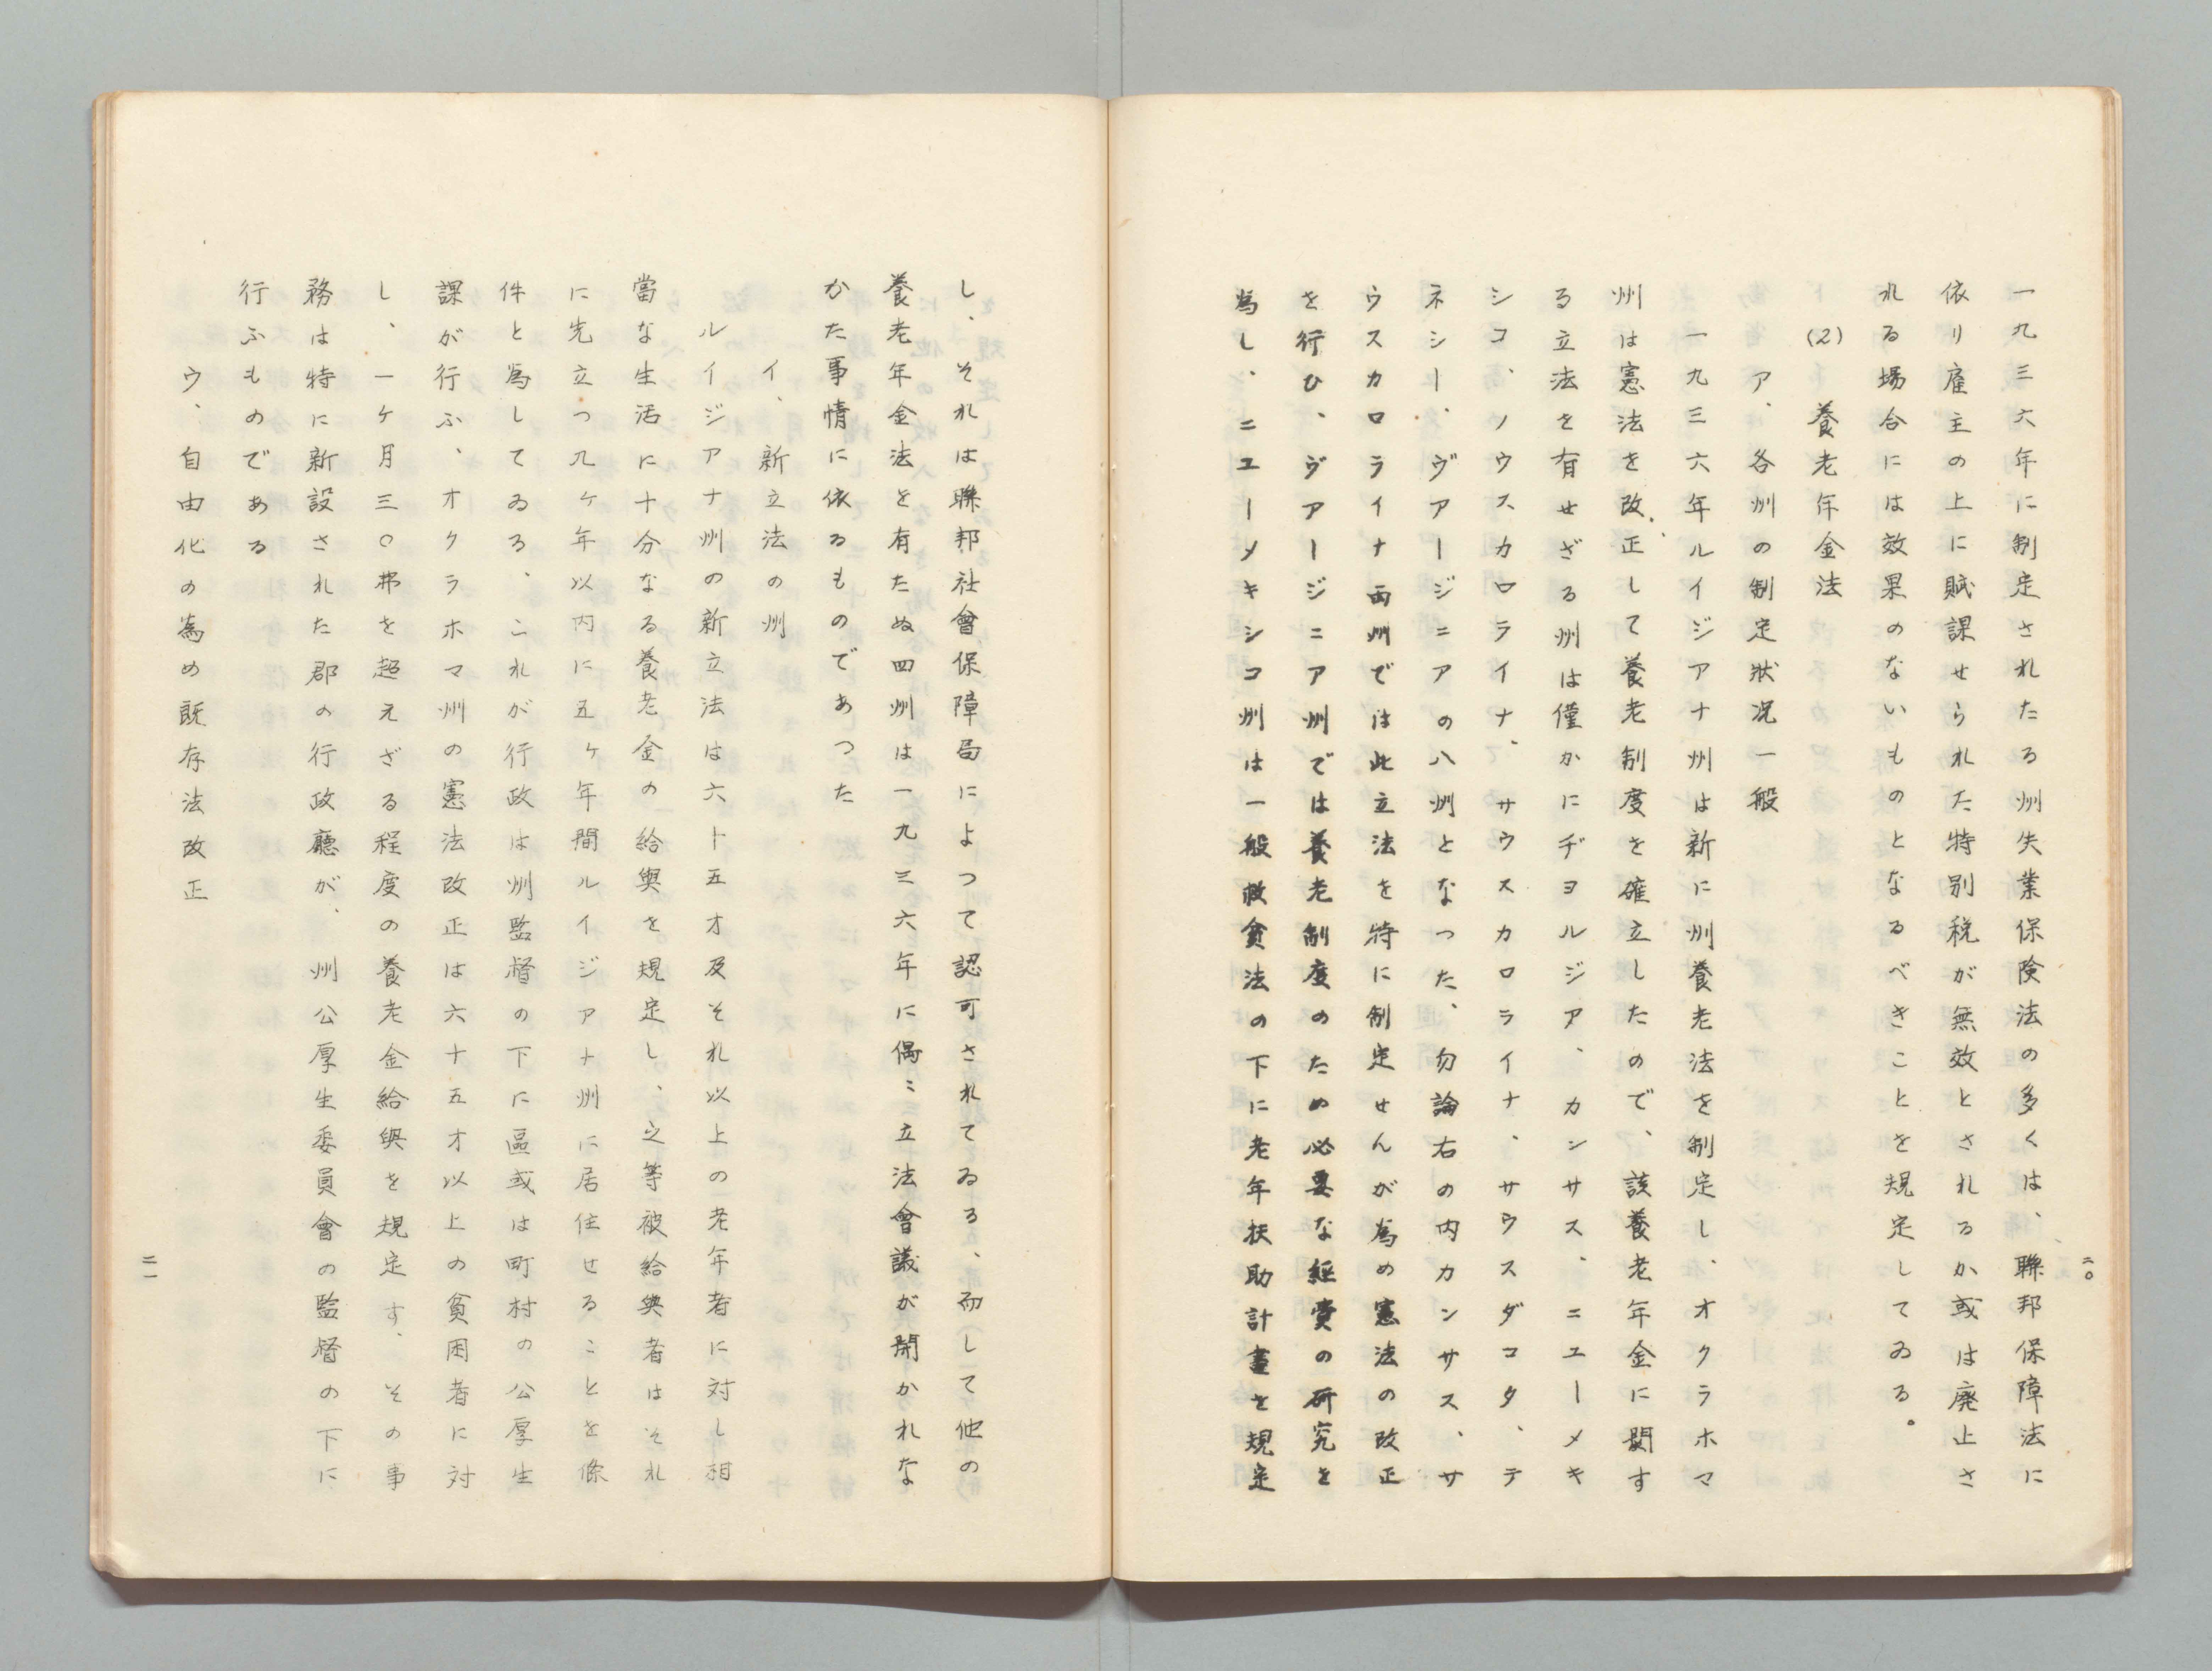 一九三六年に制定されたる州失業保険法の多くは、聯邦保障法に
依り雇主の上に賦課せられた特別税が無效とされるか或は廃止さ
れる場合には效果のないものとなるべきことを規定してゐる。
(2) 養老年金法
ア、各州の制定狀況一般
一九三六年ルイジアナ州は新に州養老法を制定し、オクラホマ
州は憲法を改正して養老制度を確立したので、該養老年金に関す
る立法を有せざる州は僅かにヂヨルジア、カンサス、ニユーメキ
シコ、ノウスカロライナ、サウスカロライナ、サウスダコタ、テ
ネシー、ヴアージニアの八州となつた、勿論右の内カンサス、サ
ウスカロライナ両州では此立法を特に制定せんが為め憲法の改正
を行ひ、ヴアージニア州では養老制度のため必要な経費の研究を
為し、ニユーメキシコ州は一般救貧法の下に老年扶助計畫を規定
二〇
し、それは聯邦社會保障局によつて認可されてゐる、而して他の
養老年金法を有たぬ四州は一九三六年に偶〻立法會議が開かれな
かた事情に依るものであつた
イ、新立法の州
ルイジアナ州の新立法は六十五才及それ以上の老年者に対し相
當な生活に十分なる養老金の給與を規定し、之等被給與者はそれ
に先立つ九ケ年以内に五ケ年間ルイジアナ州に居住せることを條
件と為してゐる、これが行政は州監督の下に區或は町村の公厚生
課が行ふ、オクラホマ州の憲法改正は六十五才以上の貧困者に対
し、一ケ月三〇弗を超えざる程度の養老金給與を規定す、その事
務は特に新設された郡の行政廳が、州公厚生委員會の監督の下に
行ふものである
ウ、自由化の為め既存法改正
二一